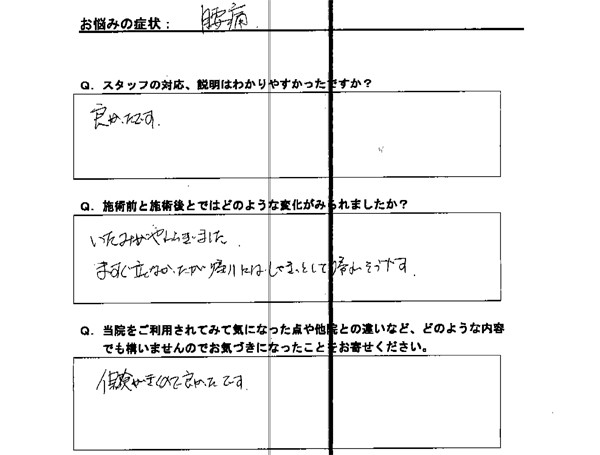 お悩みの症状： 腰痛
Q. スタッフの対応、説明はわかりやすかったですか？
良かったです。
Q. 施術前と施術後とではどのような変化がみられましたか？
いたみがやわらぎました
まっすぐ立てなかったが しゃきっとして帰れそうです。
Q. 当院をご利用されてみて気になった点や他院との違いなど、どのような内容
でも構いませんのでお気づきになったことをお寄せください。
保険がきくので良かったです。